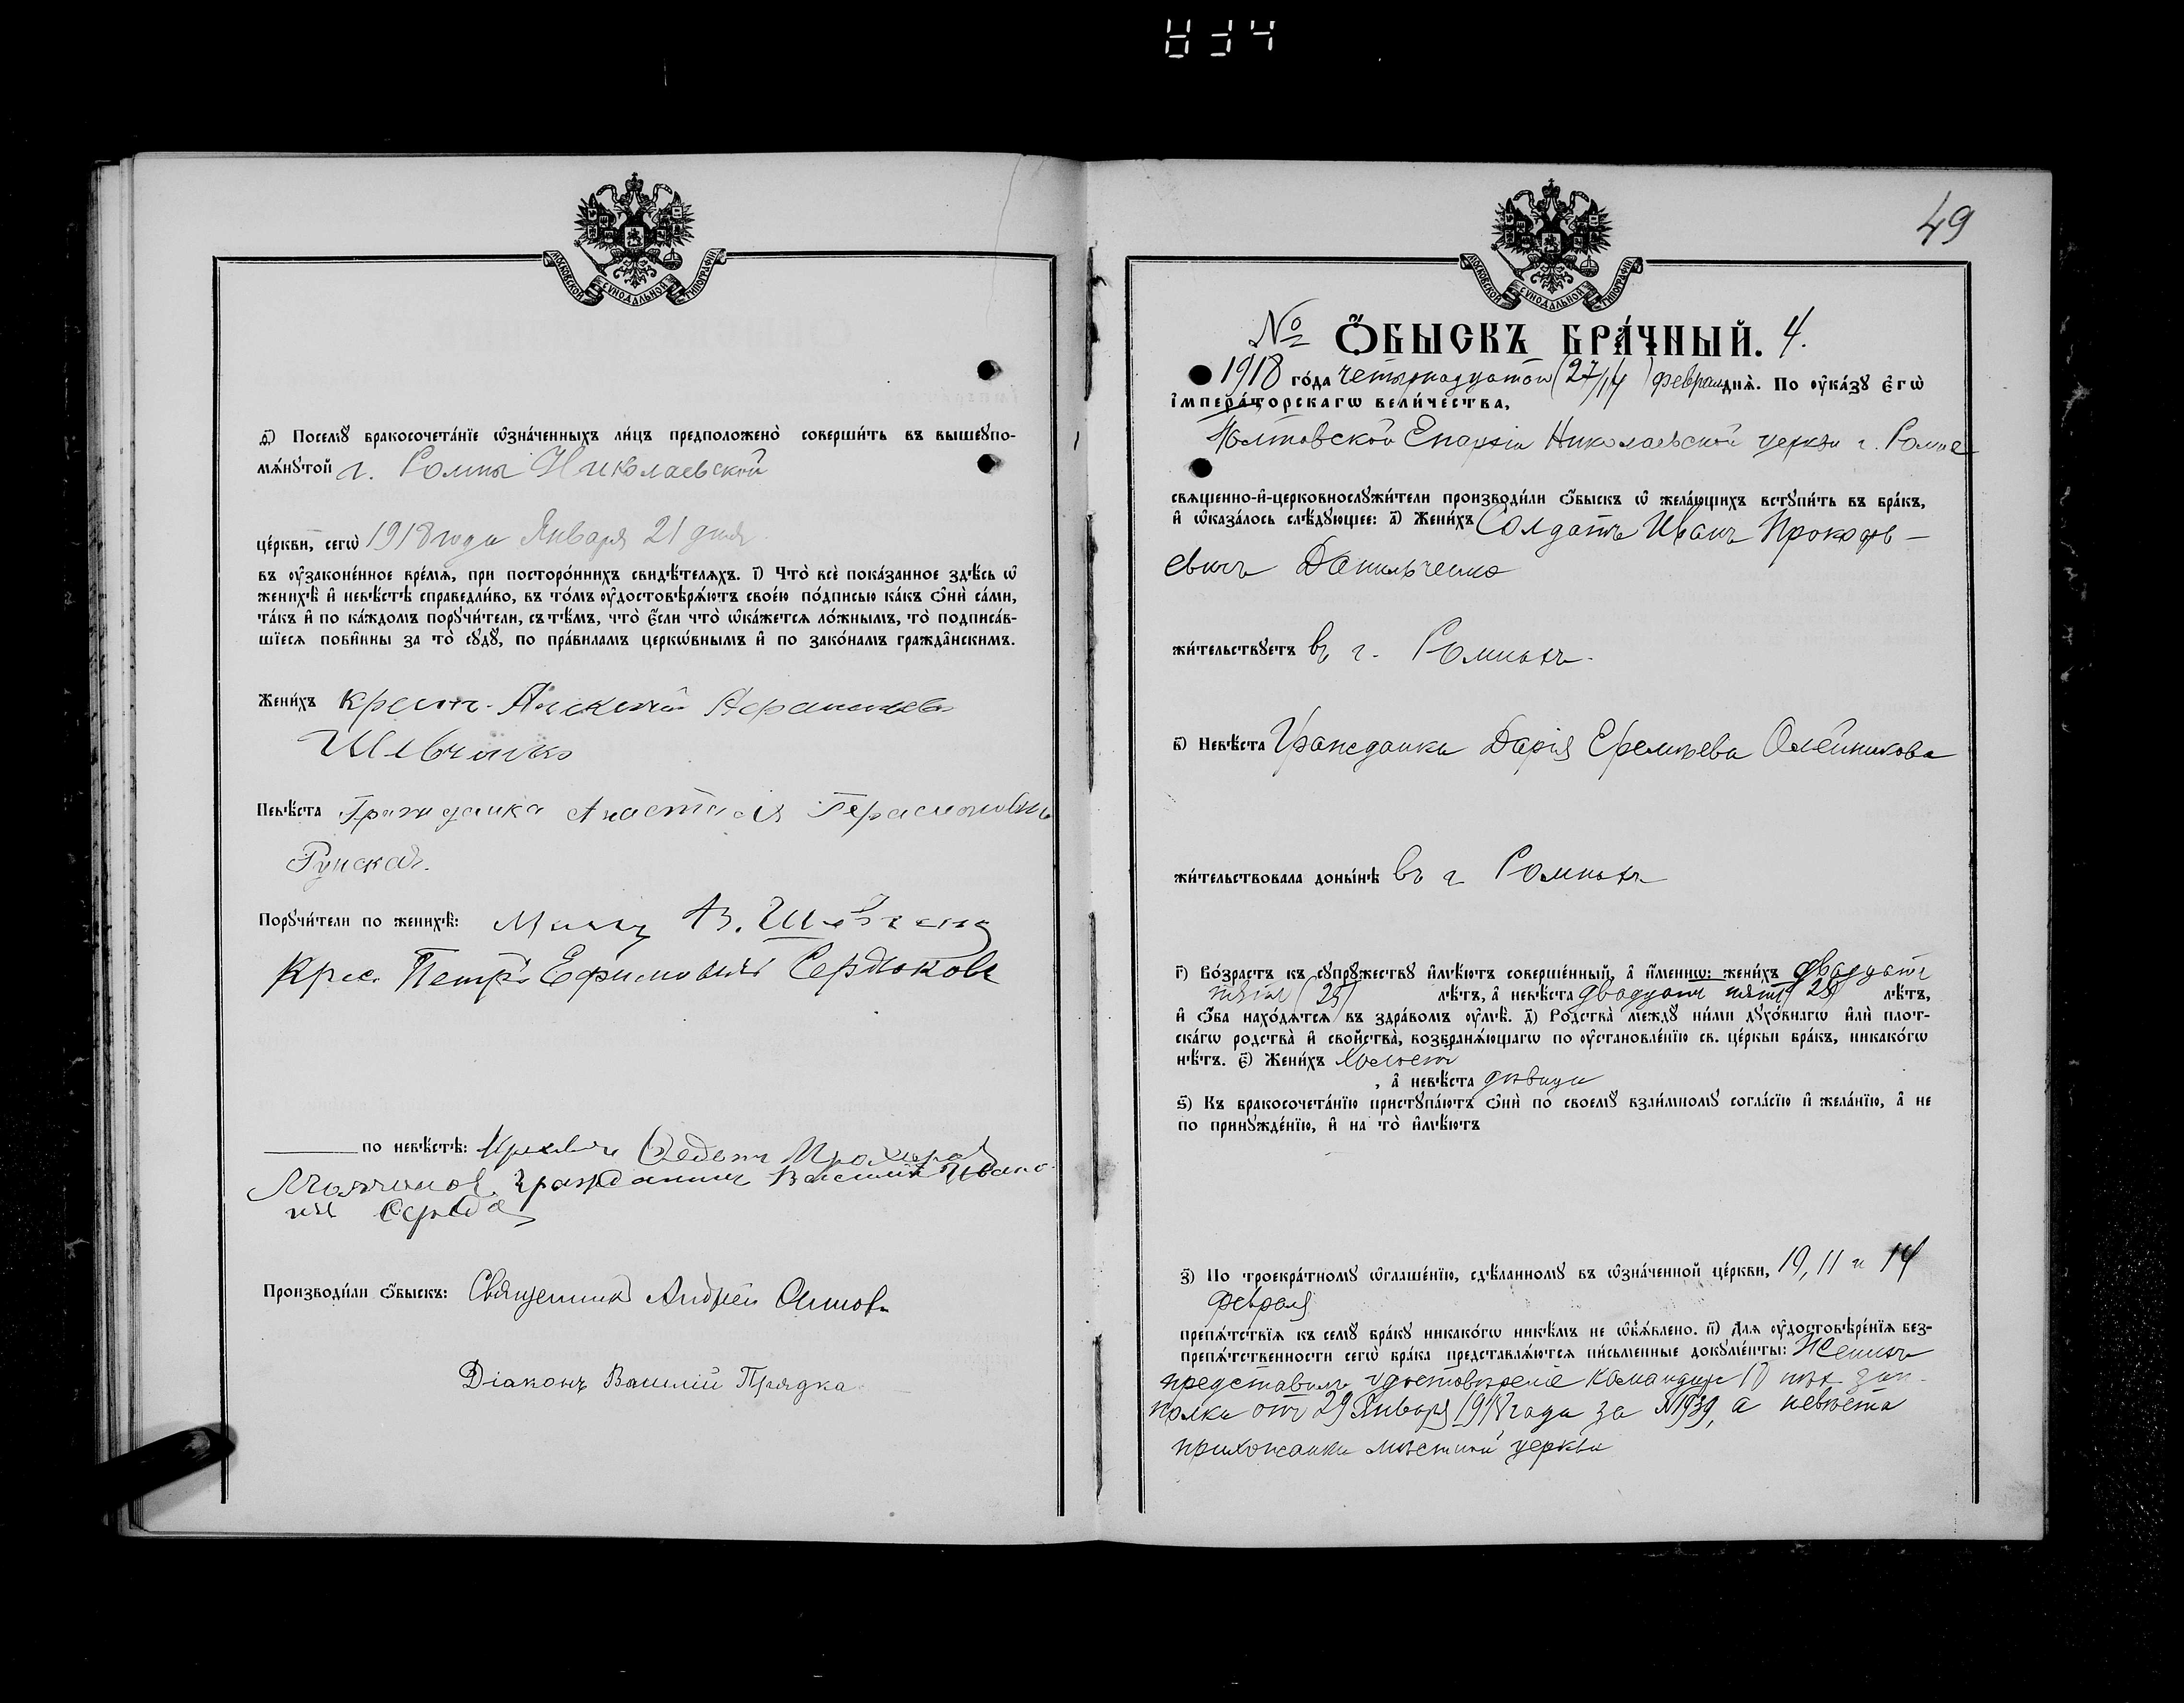 МОСКОВСКОЙ СѴНОДАЛЬНОЙ ТИПОГРАФІИ
д҃) Посемꙋ̀ бракосочета́нїе ѡ҆зна́ченныхъ ли́цъ предположено̀ соверши́ть въ вышеꙋпо-
мѧ́нꙋтой г. Ромны Николаевской
це́ркви, сегѡ̀ 1918 года Января 21 дня
въ ᲂу҆законе́нное вре́мѧ, при посторо́ннихъ свидѣ́телѧхъ. і҃) Что̀ всѐ пока́занное здѣ́сь ѡ҆
женихѣ̀ и҆ невѣ́стѣ справедли́во, въ то́мъ ᲂу҆достовѣрѧ́ютъ свое́ю по́дписью ка́къ ѻ҆нѝ са́ми,
та́къ и҆ по ка́ждомъ порꙋчи́тели, съ тѣ́мъ, что̀ є҆́сли что̀ ѡ҆ка́жетсѧ ло́жнымъ, то̀ подписа́в-
шїесѧ пови́нны за то̀ сꙋдꙋ̀, по пра́виламъ церкѡ́внымъ и҆ по зако́намъ гражда́нскимъ.
Жени́хъ крест.
Шевченко
Невѣ́ста Гражданка Анастасія Герасимовна
Рунская.
Порꙋчи́тели по женихѣ̀: В.
Крес. Петръ Ефимовичъ Сердюковъ
по невѣ́стѣ:
гражданинъ Василій Ивано-
Середа
Производи́ли ѻ҆́быскъ: Священникъ Андрей
Діаконъ Василій Прядка
49
МОСКОВСКОЙ СѴНОДАЛЬНОЙ ТИПОГРАФІИ
№ Ѻ҆́БЫСКЪ БРА́ЧНЫЙ. 4.
1918 го́да четырнадцатого (27/14) февраля днѧ̀. По ᲂу҆ка́зꙋ є҆гѡ̀
і҆мпера́торскагѡ вели́чества,
Полтавской Епархіи Николаевской церкви г. Ромне
свѧще́нно-и҆-церковнослꙋжи́тели производи́ли ѻ҆́быскъ ѡ҆ жела́ющихъ встꙋпи́ть въ бра́къ,
и҆ ѡ҆каза́лось слѣ́дꙋющее: а҃) Жени́хъ Солдатъ Иванъ Прокофь-
евичъ Данильченко
жи́тельствꙋетъ въ г. Ромнахъ.
в҃) Невѣ́ста Гражданка Дарія Ефемьева Олейникова
жи́тельствовала доны́нѣ въ г Ромнахъ
г҃) Во́зрастъ къ сꙋпрꙋ́жествꙋ и҆мѣ́ютъ соверше́нный, а҆ и҆́меннѡ: жени́хъ двадцати
пяти (25) лѣ́тъ, а҆ невѣ́ста двадцати пяти (25) лѣ́тъ,
и҆ ѻ҆́ба нахо́дѧтсѧ въ здра́вомъ ᲂу҆мѣ̀. д҃) Родства̀ междꙋ̀ ни́ми дꙋхо́внагѡ и҆лѝ плот-
ска́гѡ родства̀ и҆ свойства̀, возбранѧ́ющагѡ по ᲂу҆становле́нїю св. це́ркви бра́къ, никако́гѡ
нѣ́тъ. є҃) Жени́хъ холостъ
, а҆ невѣ́ста дѣвица
ѕ҃) Къ бракосочета́нїю пристꙋпа́ютъ ѻ҆нѝ по своемꙋ̀ взаи́мномꙋ согла́сїю и҆ жела́нїю, а҆ не
по принꙋжде́нїю, и҆ на то̀ и҆мѣ́ютъ
з҃) По троекра́тномꙋ ѡ҆глаше́нїю, сдѣ́ланномꙋ въ ѡ҆зна́ченной це́ркви, 10, 11 и 14
февраля
препѧ́тствїѧ къ семꙋ̀ бра́кꙋ никако́гѡ никѣ́мъ не ѡ҆бъѧ́влено. и҃) Для ᲂу҆достовѣре́нїѧ без-
препѧ́тственности сегѡ̀ бра́ка представлѧ́ютсѧ пи́сьменные докꙋме́нты: Женихъ
представилъ удостовѣреніе командира пѣх. зап.
полка отъ 29 Января 1918 года за №1939, а невѣста
прихожанка мѣстной церкви